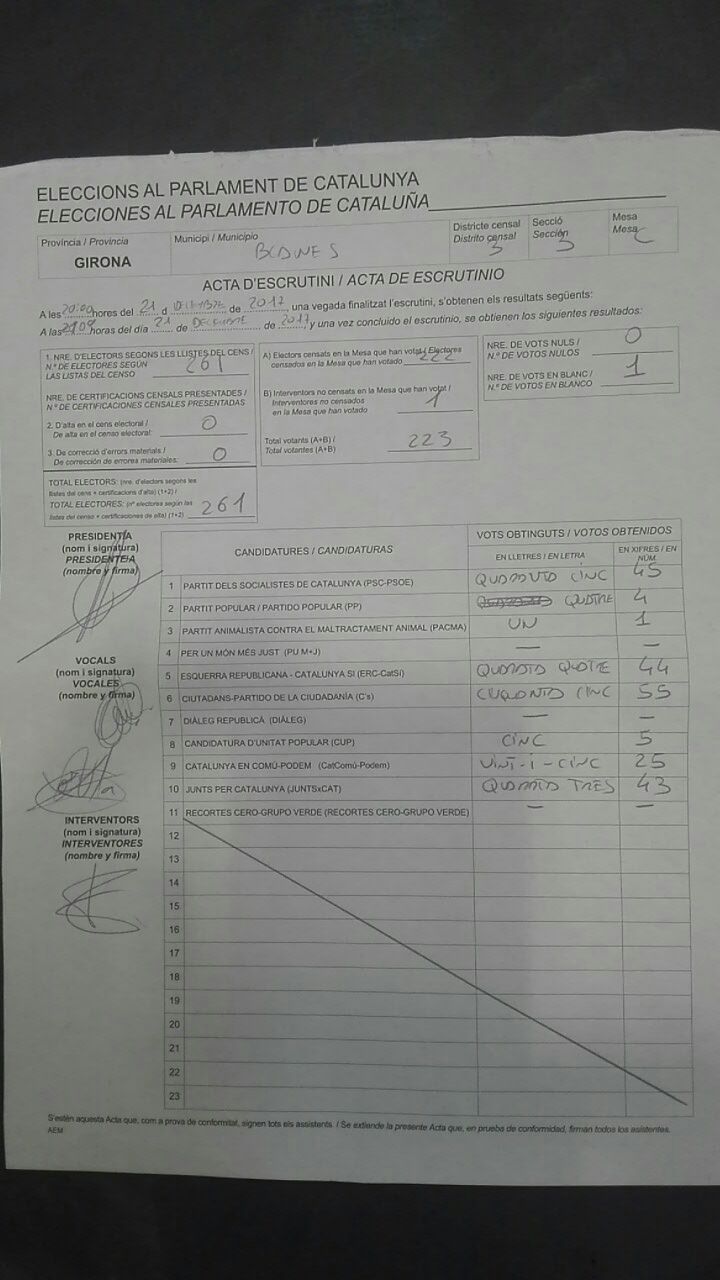 ELECCIONS AL PARLAMENT DE CATALUNYA
ELECCIONES AL PARLAMENTO DE CATALUÑA
Provincia / Provincia
GIRONA
Municipi / Municipio
Districte censal
Distrito censal
3
Secció
Sección
3
Mesa
Mesa
C
ACTA D'ESCRUTINI / ACTA DE ESCRUTINIO
A les 20:00 hores del 21 d de 2017, una vegada finalitzat l'escrutini, s'obtenen els resultats següents:
A las horas del día 21 de de 2017, y una vez concluido el escrutinio, se obtienen los siguientes resultados:
1. NRE. D'ELECTORS SEGONS LES LLISTES DEL CENS /
N.º DE ELECTORES SEGÚN
LAS LISTAS DEL CENSO
261
NRE. DE CERTIFICACIONS CENSALS PRESENTADES /
N.º DE CERTIFICACIONES CENSALES PRESENTADAS
2. D'alta en el cens electoral /
De alta en el censo electoral:
0
3. De correcció d'errors materials /
De corrección de errores materiales:
0
TOTAL ELECTORS: (nre. d'electors segons les
llistes del cens + certificacions d'alta) (1+2) /
TOTAL ELECTORES: (nº electores según las
listas del censo + certificaciones de alta) (1+2)
261
A) Electors censats en la Mesa que han votat / Electores
censados en la Mesa que han votado
222
B) Interventors no censats en la Mesa que han votat /
Interventores no censados
en la Mesa que han votado
1
Total votants (A+B) /
Total votantes (A+B)
223
NRE. DE VOTS NULS /
N.º DE VOTOS NULOS
0
NRE. DE VOTS EN BLANC /
N.º DE VOTOS EN BLANCO
1
PRESIDENT/A
(nom i signatura)
PRESIDENTE/A
(nombre y firma)
VOCALS
(nom i signatura)
VOCALES
(nombre y firma)
INTERVENTORS
(nom i signatura)
INTERVENTORES
(nombre y firma)
CANDIDATURES / CANDIDATURAS
VOTS OBTINGUTS / VOTOS OBTENIDOS
EN LLETRES / EN LETRA
EN XIFRES / EN NÚM.
1 PARTIT DELS SOCIALISTES DE CATALUNYA (PSC-PSOE) CINC 45
2 PARTIT POPULAR / PARTIDO POPULAR (PP) QUATRE 4
3 PARTIT ANIMALISTA CONTRA EL MALTRACTAMENT ANIMAL (PACMA) UN 1
4 PER UN MÓN MÉS JUST (PU M+J) — —
5 ESQUERRA REPUBLICANA - CATALUNYA SI (ERC-CatSí) QUATRE 44
6 CIUTADANS-PARTIDO DE LA CIUDADANÍA (C's) CINC 55
7 DIÀLEG REPUBLICÀ (DIÀLEG) — —
8 CANDIDATURA D'UNITAT POPULAR (CUP) CINC 5
9 CATALUNYA EN COMÚ-PODEM (CatComú-Podem) VINT-I-CINC 25
10 JUNTS PER CATALUNYA (JUNTSxCAT) TRES 43
11 RECORTES CERO-GRUPO VERDE (RECORTES CERO-GRUPO VERDE) — —
12
13
14
15
16
17
18
19
20
21
22
23
S'estén aquesta Acta que, com a prova de conformitat, signen tots els assistents. / Se extiende la presente Acta que, en prueba de conformidad, firman todos los asistentes.
AEM